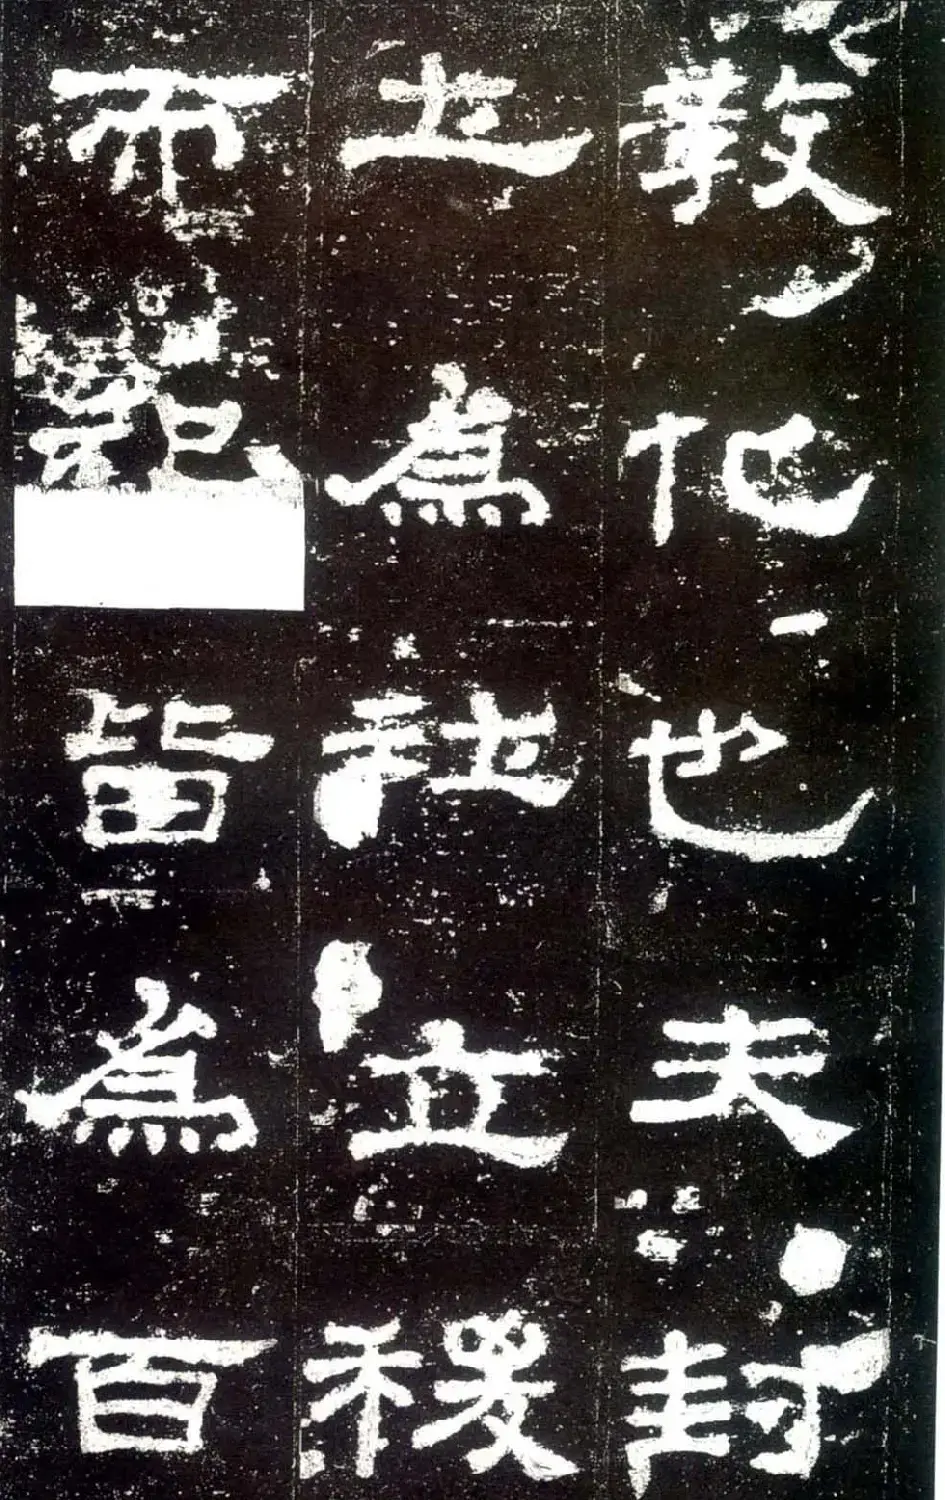 教化也夫封
土為社立稷
而祀皆為百